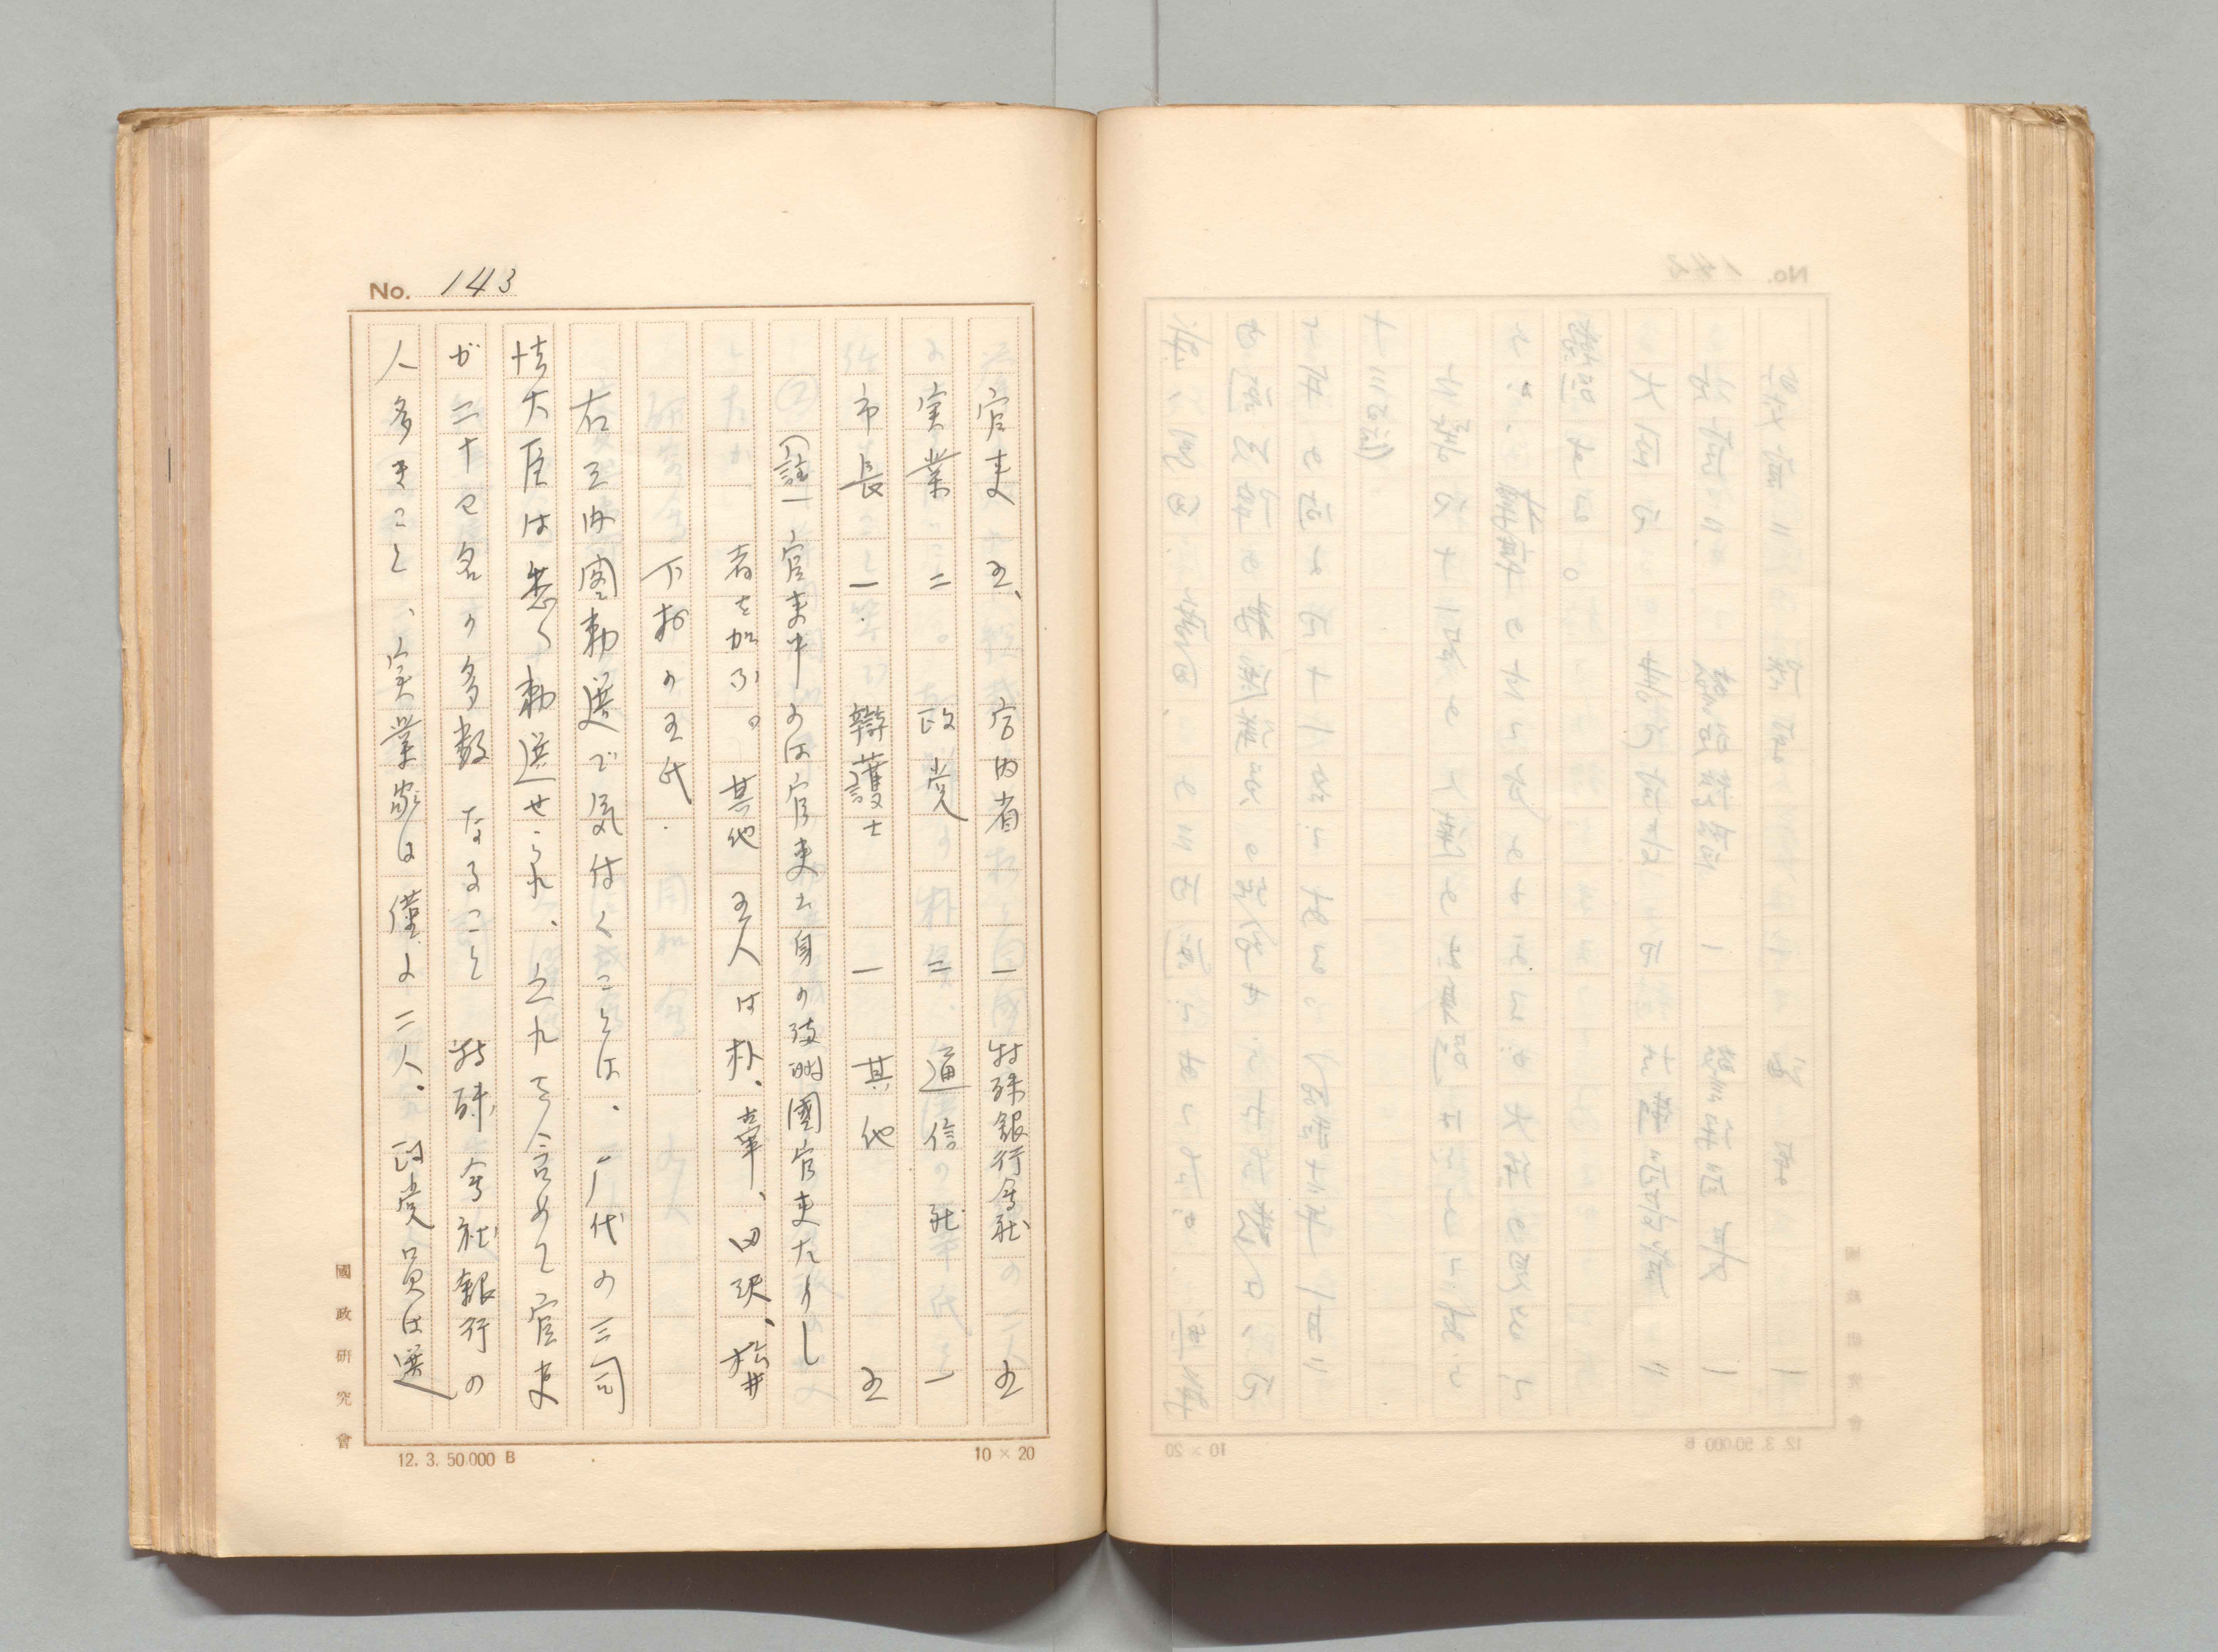 No. 143
官吏 五、 宮内省 一 特殊銀行會社 五
実業 二 政党 二 通信社 一
市長 一 辯護士 一 其他 五
(註一) 官吏中には官吏出身の殖國官吏たりし
者を加ふ。其他五人は朴、韋、田沢、松井
下村の五氏
右五内閣勅選で気付くことは、歴代の三司
法大臣は悉く勅選せられ、之れを含めて官吏
が二十七名の多数なること 特殊會社銀行の
人多きこと、実業家は僅に二人。政党員は選
國政研究會
12. 3. 50.000 B
10 × 20